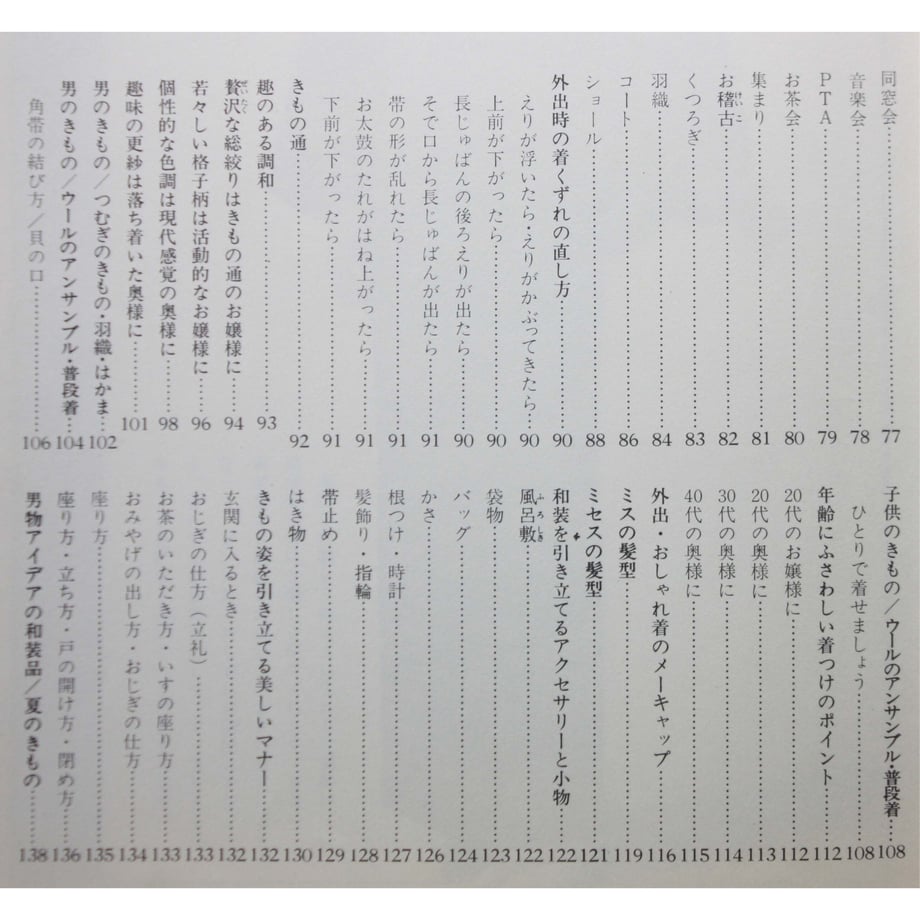 同窓会……77
音楽会……78
PTA……79
お茶会……80
集まり……81
お稽古……82
くつろぎ……83
羽織……84
コート……86
ショール……88
外出時の着くずれの直し方……90
えりが浮いたら・えりがかぶってきたら……90
上前が下がったら……90
長じゅばんの後ろえりが出たら……90
そで口から長じゅばんが出たら……91
帯の形が乱れたら……91
お太鼓のたれがはね上がったら……91
下前が下がったら……91
きもの通……92
趣のある調和……93
贅沢な総絞りはきもの通のお嬢様に……94
若々しい格子柄は活動的なお嬢様に……96
個性的な色調は現代感覚の奥様に……98
趣味の更紗は落ち着いた奥様に……101
男のきもの/つむぎのきもの・羽織・はかま……102
男のきもの/ウールのアンサンブル・普段着……104
角帯の結び方/貝の口……106
子供のきもの/ウールのアンサンブル・普段着……108
ひとりで着せましょう……108
年齢にふさわしい着つけのポイント……112
20代のお嬢様に……112
20代の奥様に……113
30代の奥様に……114
40代の奥様に……115
外出・おしゃれ着のメーキャップ……116
ミスの髪型……119
ミセスの髪型……121
和装を引き立てるアクセサリーと小物……122
風呂敷……122
袋物……123
バッグ……124
かさ……126
根つけ・時計……127
髪飾り・指輪……128
帯止め……129
はき物……130
きもの姿を引き立てる美しいマナー……132
玄関に入るとき……132
おじぎの仕方(立礼)……133
お茶のいただき方・いすの座り方……133
おみやげの出し方・おじぎの仕方……134
座り方……135
座り方・立ち方・戸の開け方・閉め方……136
男物アイデアの和装品/夏のきもの……138